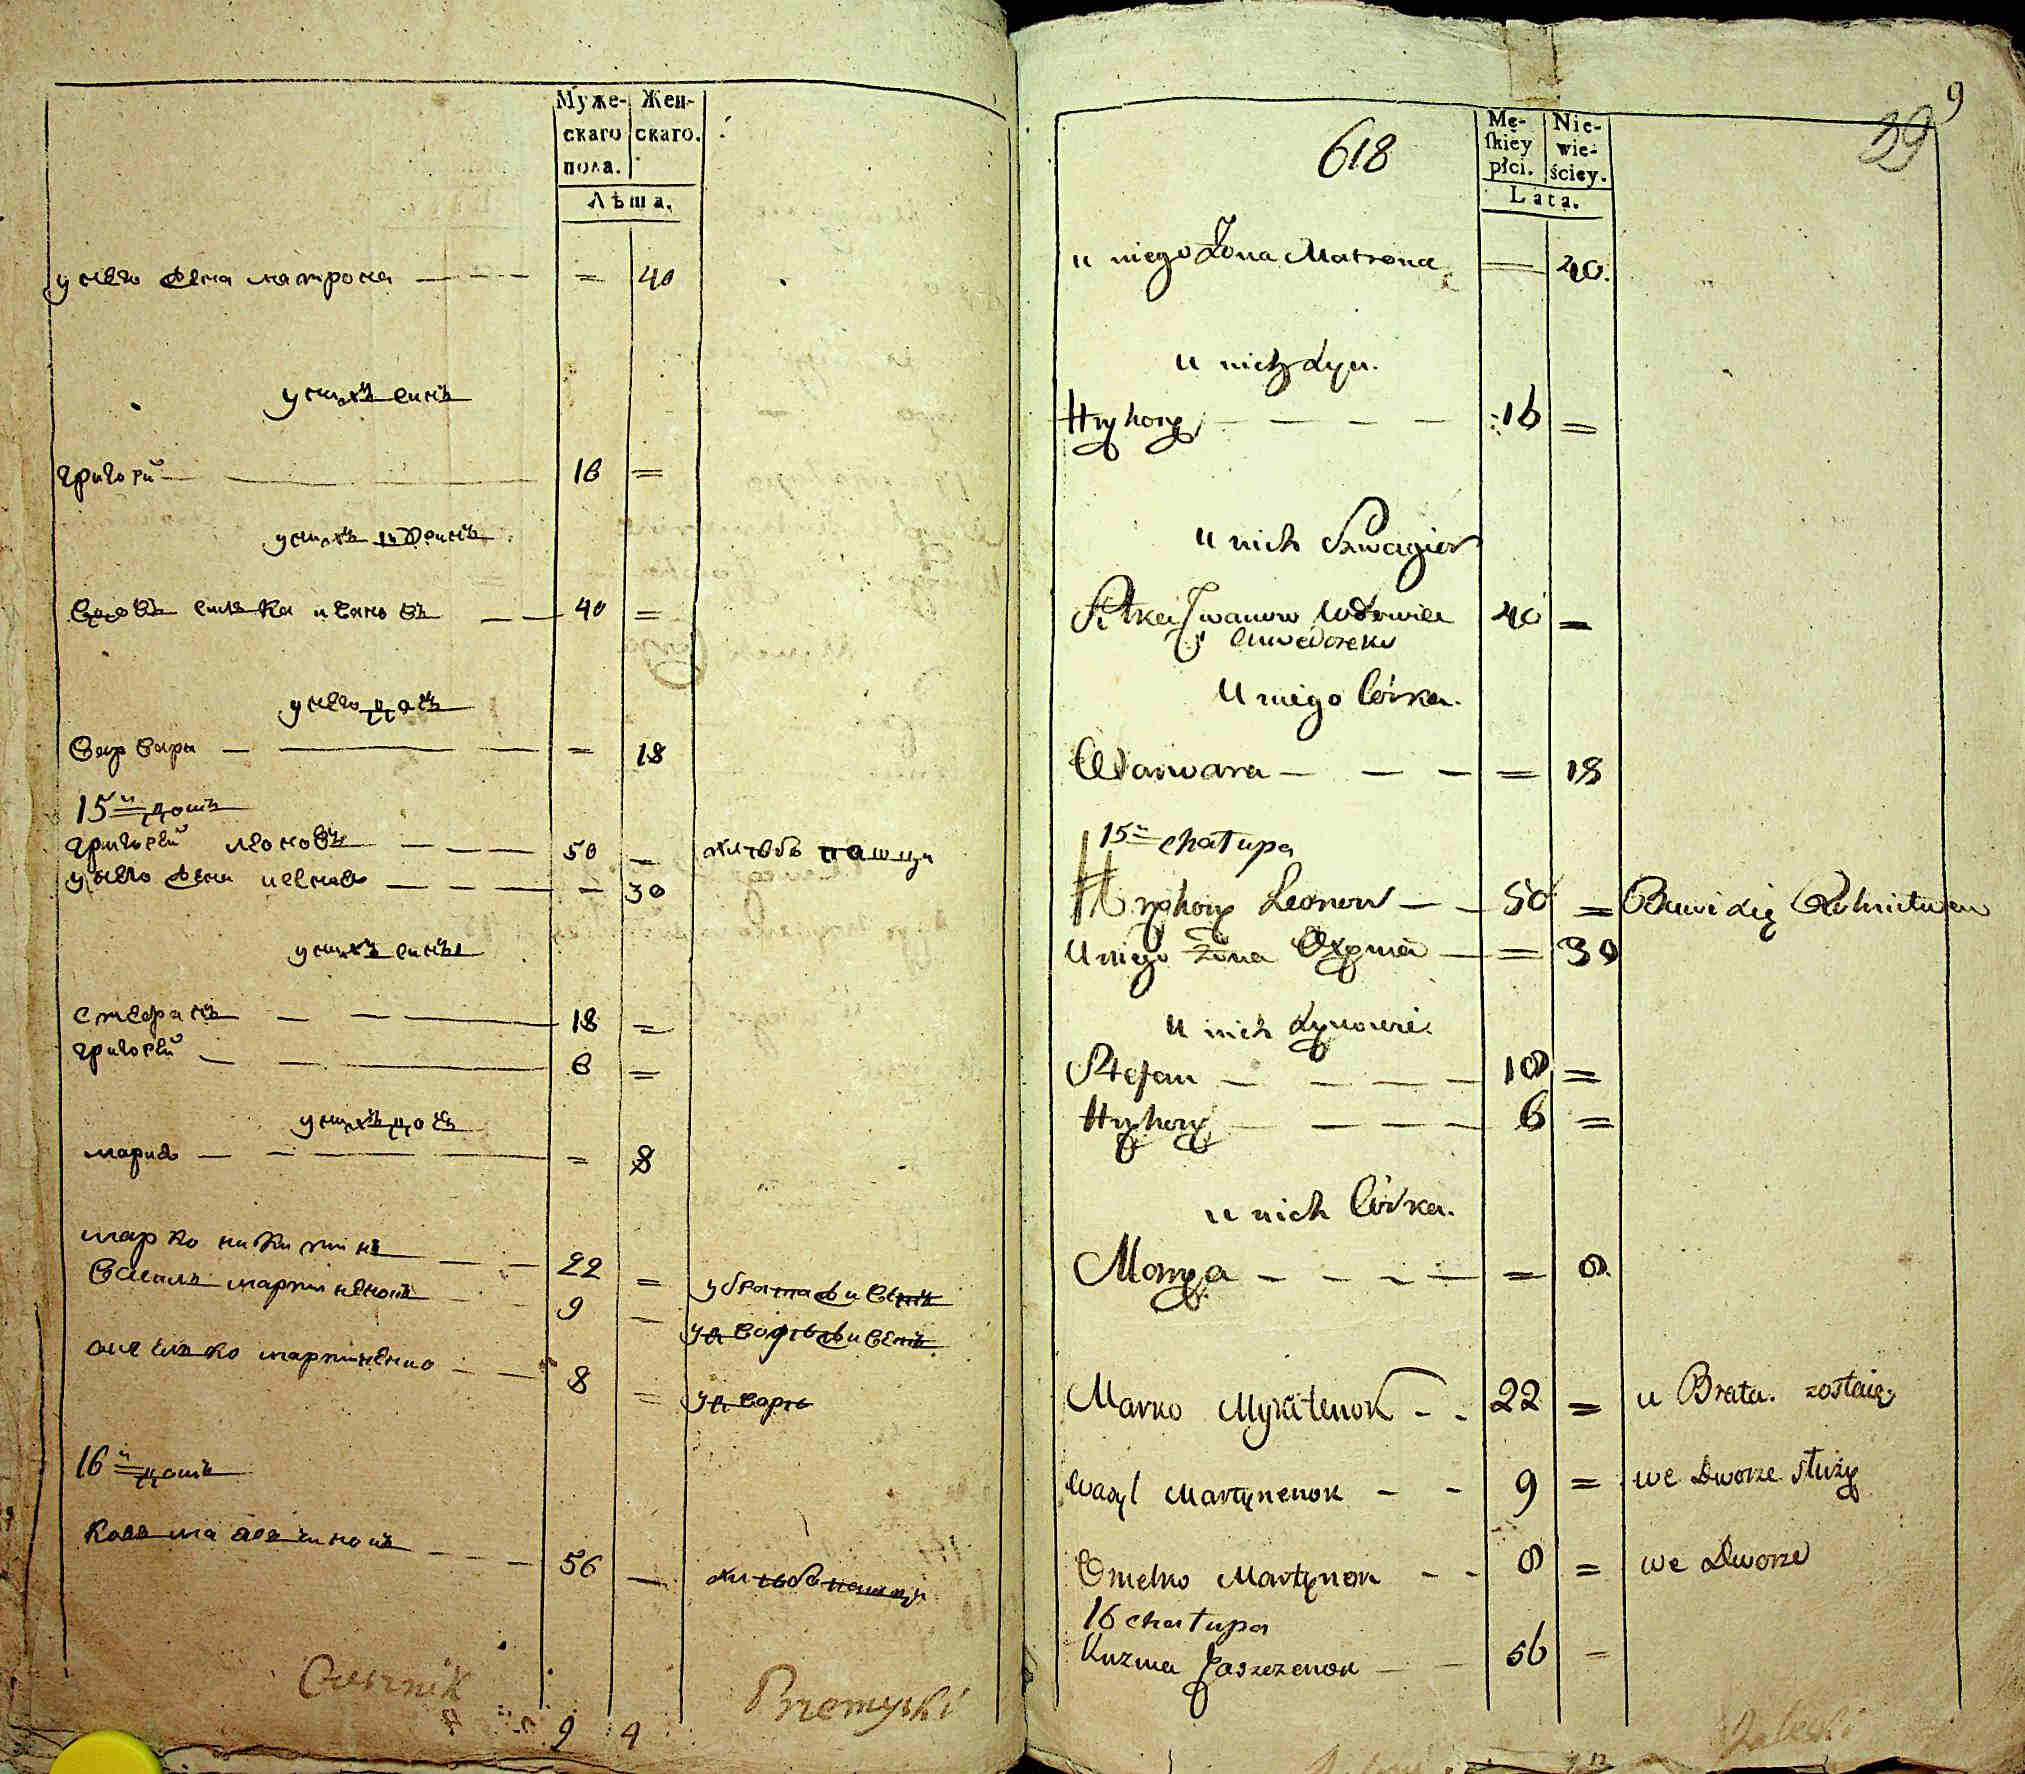 Муже-
скаго
пола.
Жен-
скаго.
Лѣта.
у него жена матрона — — — = 40
у нихъ синъ
григорій — — 16 =
у нихъ
вдовъ силка ивановъ — — 40 =
у него доч
варвара — — = 18
15й домъ
григорій леоновъ — — — 50 = хлѣбо пашци
у него жена — — — — 30
у нихъ сины
стефанъ — — 18 =
григорій — — 6 =
у нихъ доч
мария — — = 8
марко никитинъ — — 22 = у брата живетъ
василъ мартиненокъ — — 9 — у дворѣ живетъ
омелко мартиненко — — 8 = у дворѣ
16й домъ
козма — — — 56 — хлѣбопашци
9 4
Przemyski
9
39
618
Mę-
skiey
płci.
Nie-
wie-
ściey.
Lata.
u niego Żona Matrona = 40.
u nich Syn.
Hryhory — — — — 16 =
u nich Szwagier
Silka Iwanow Wdowiec 40 =
U niego Córka.
Warwara — — — = 18
15n chałupa
Hryhory Leonow — — 50 = Bawi się Rolnictwem
U niego Żona — = 30
u nich Synowie.
Stefan — — — — 18 =
Hryhory — — — — 6 =
u nich Córka.
Marya — — — — = 8
Marko Mykitenok — — 22 = u Brata. zostaie
Wasyl Martynenok — — 9 = we Dworze służy
Omelko Martynok — — 8 = we Dworze
16 chałupa
Kuzma Jaszczenok — — 56 =
Zaleski